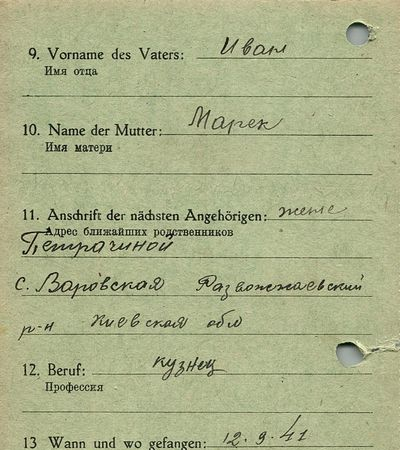 9. Vorname des Vaters: Иван
Имя отца
10. Name der Mutter: Марек
Имя матери
11. Anschrift der nächsten Angehörigen: жене
Адрес ближайших родственников
Петрачиной
с. Варовская Развожжаевский
р-н Киевская обл
12. Beruf: кузнец
Профессия
13 Wann und wo gefangen: 12.9.41